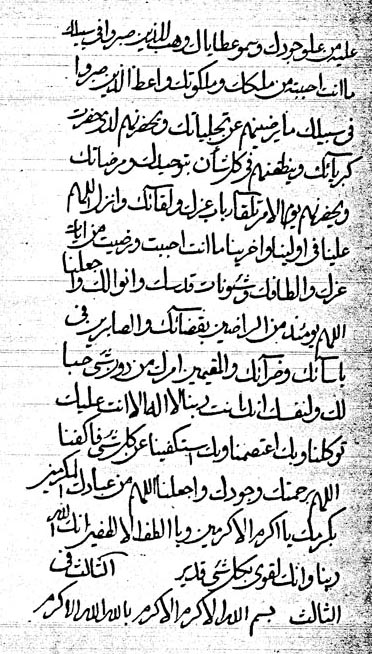 علينا من علو جودك وسمو عطاياك وهب للذين صبروا في سبيلك
ما انت احببته من ملكك وملكوتك واعط الذين صبروا
في سبيلك ما يرضينهم عن تجلياتك ويحضرنهم لدى حضرت
كبريائك وينطقنهم في كل شأن بتوحيدك ورضائك
ويحضرنهم يوم الامر تلقاء باب عزك ولقائك وانزل اللهم
علينا في اولينا واخرينا ما انت احببت ورضيت من اياك
عزك والطافك وشئونات قدسك وانوالك واجعلنا
اللهم يومئذ من الراضين بقضائك والصابرين في
باسائك وضرائك والمقيمين امرك من دون شئ حبا
لك ولنفسك انك انت ربنا لا اله الا انت عليك
توكلنا وبك اعتصمنا وبك استكفينا عن كل شئ فاكفنا
اللهم برحمتك وجودك واجعلنا اللهم من عبادك المكرمين
بكرمك يا اكرم الاكرمين ويا الطف الالطفين انك الله
ربنا وانك لقوى بكل شئ قدير الثالث في
الثالث بسم الله الاكرم الاكرم بالله الله الاكرم